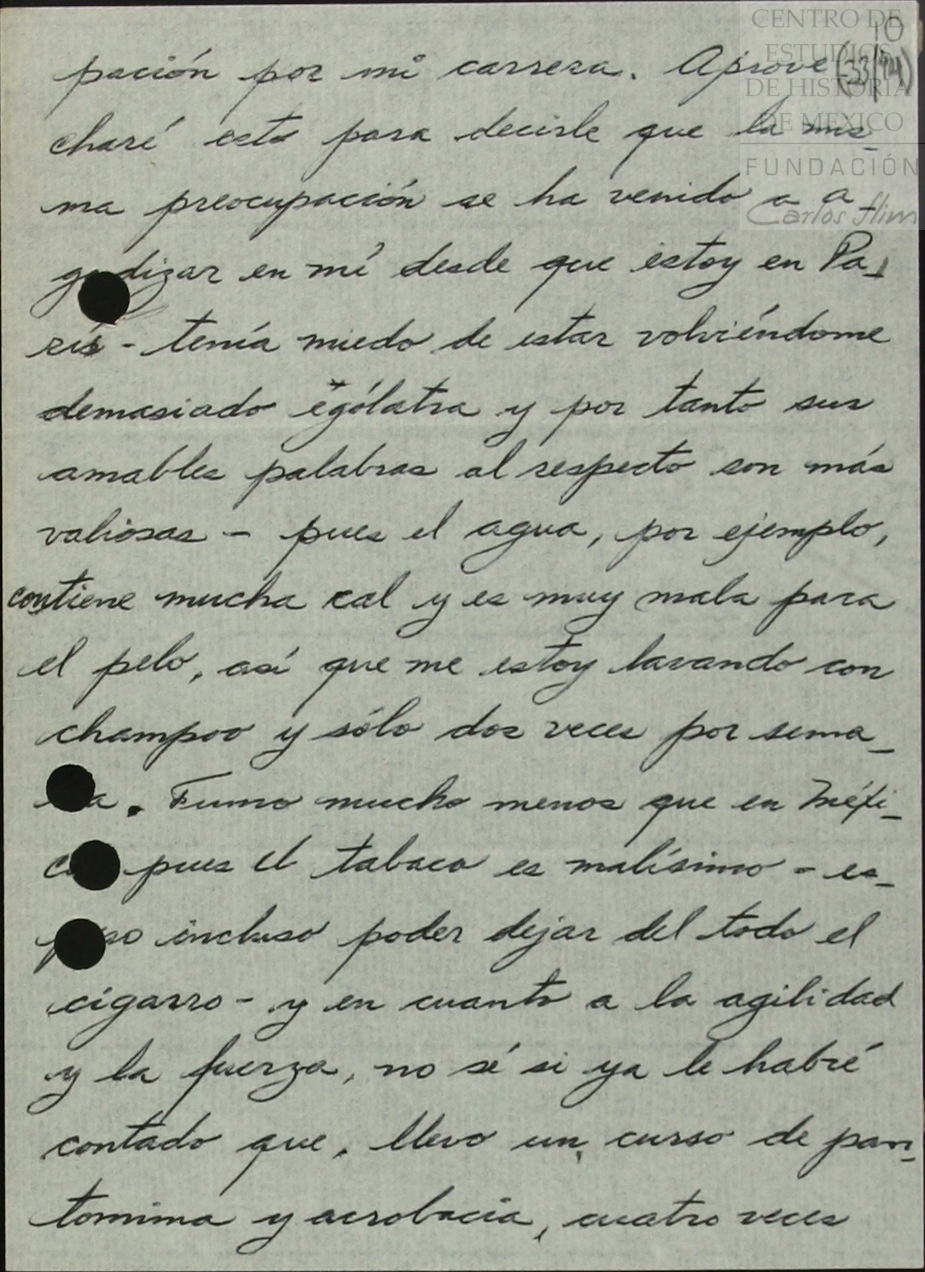 CENTRO DE
ESTUDIOS
DE HISTORIA
DE MEXICO
FUNDACIÓN
Carlos Slim
10
pación por mi carrera. Aprove
charé esto para decirle que la mis_
ma preocupación se ha venido a a
gudizar en mí desde que estoy en Pa_
rís - tenía miedo de estar volviéndome
demasiado ególatra y por tanto sus
amables palabras al respecto son más
valiosas - pues el agua, por ejemplo,
contiene mucha cal y es muy mala para
el pelo, así que me estoy lavando con
champoo y sólo dos veces por sema_
na. Fumo mucho menos que en Méxi-
co pues el tabaco es malísimo - es_
pero incluso poder dejar del todo el
cigarro - y en cuanto a la agilidad
y la fuerza, no sé si ya le habré
contado que, llevo un curso de pan_
tomima y acrobacia, cuatro veces